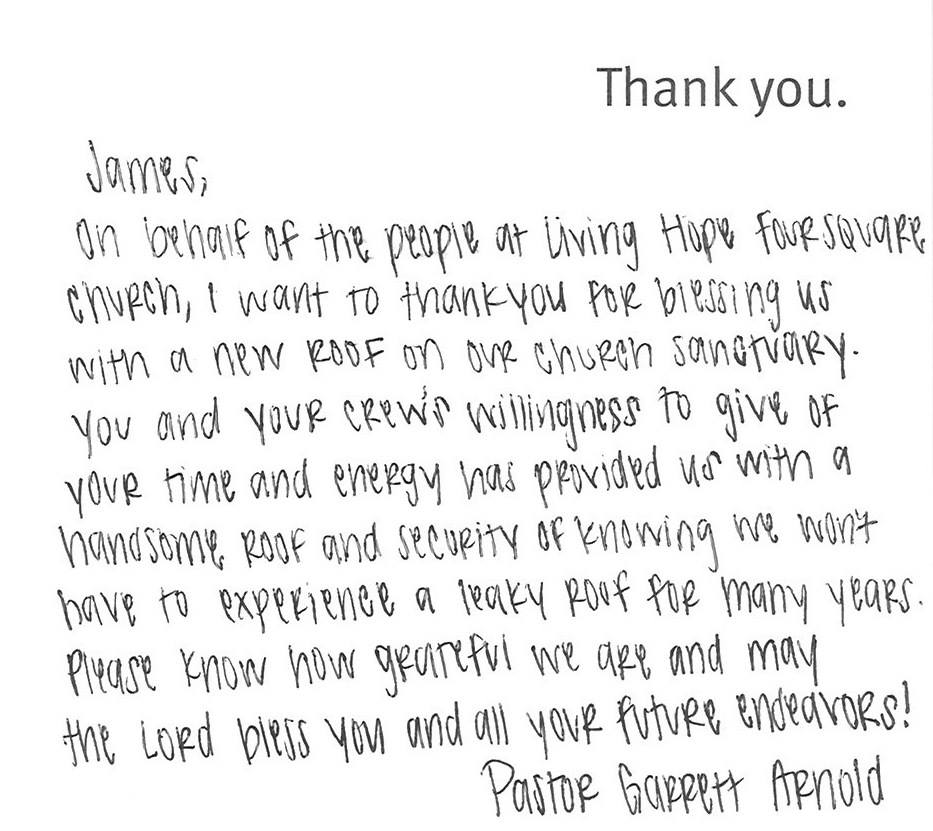 Thank you.
James,
On behalf of the people at Living Hope Foursquare
church, I want to thank you for blessing us
with a new roof on our church sanctuary.
You and your crew's willingness to give of
your time and energy has provided us with a
handsome roof and security of knowing we won't
have to experience a leaky roof for many years.
Please know how grateful we are and may
the Lord bless you and all your future endeavors!
Pastor Garrett Arnold